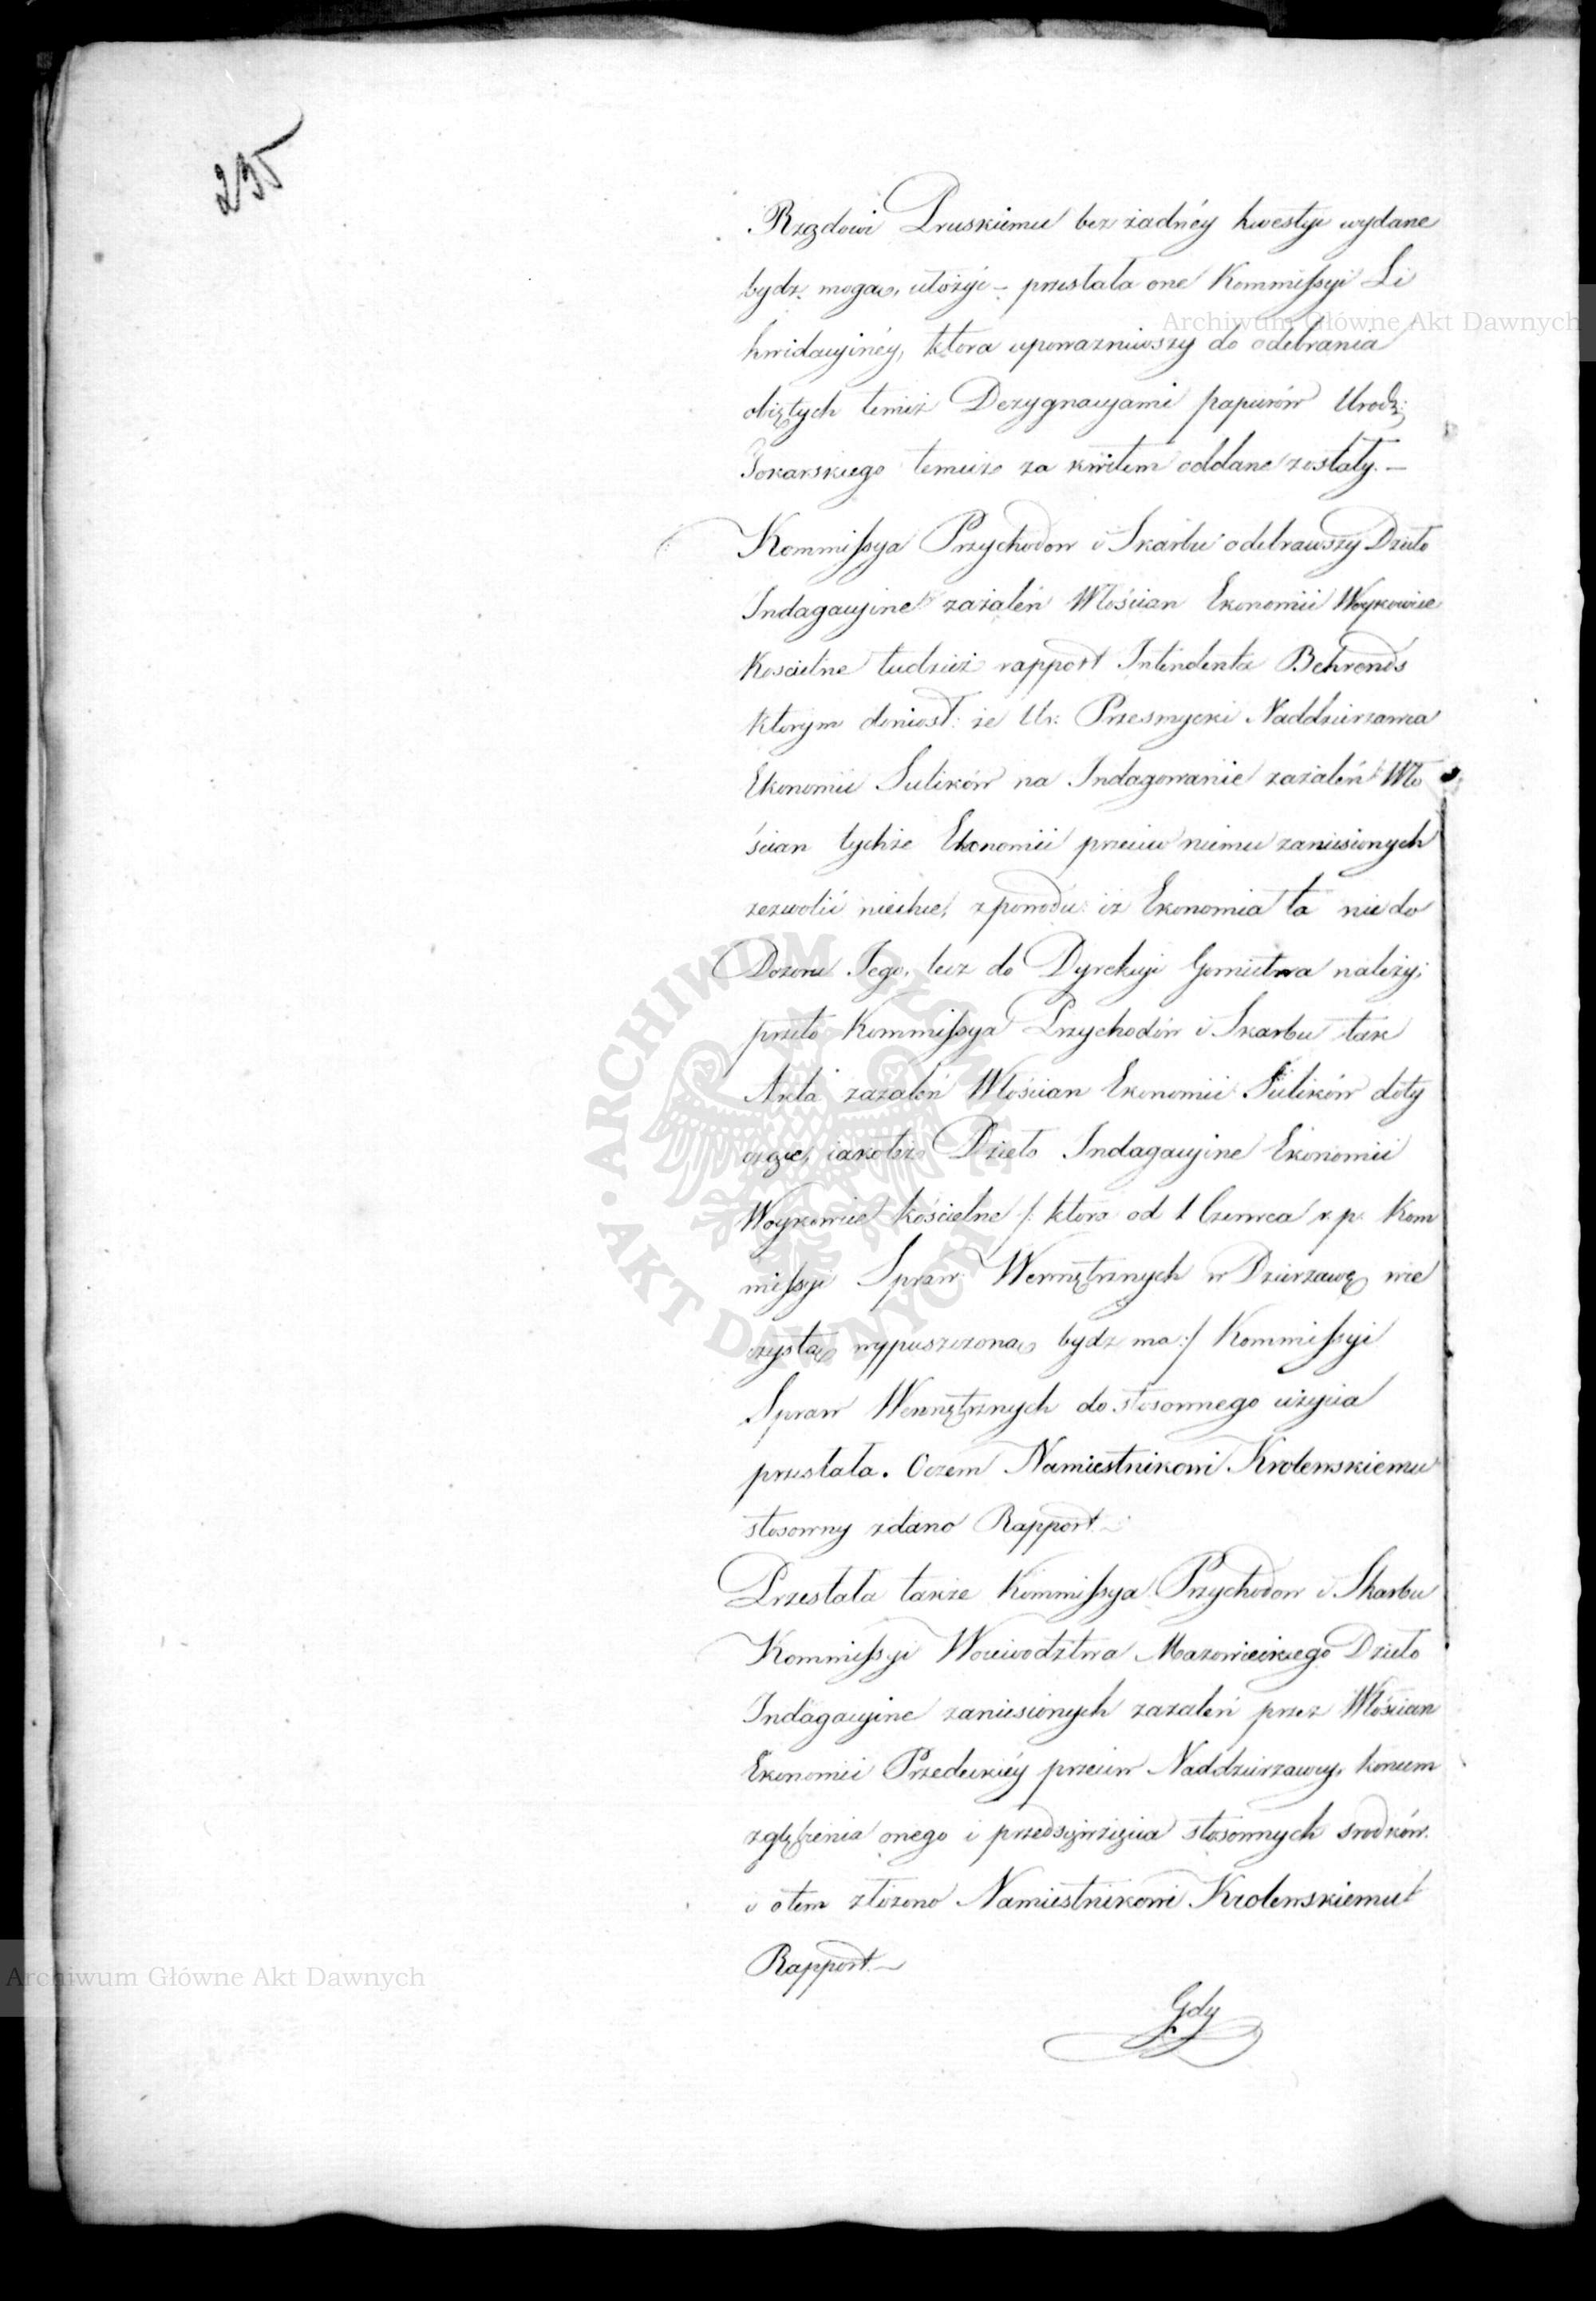 235
Rządowi Pruskiemu bez żadnéy kwestyi wydane
bydź mogą, ułożyć – przesłała one Kommissyi Li
kwidacyinéy, ktora upoważniwszy do odebrania
obiętych temiż Dezygnacyami papierów Urodz:
Tokarskiego temuże za kwitem oddane zostały. –
Kommissya Przychodow i Skarbu odebrawszy Dzieło
Indagacyine zażaleń Włościan Ekonomii Woykowice
Koscielne tudzież rapport Intendenta Behrends
ktorym doniosł: że Ur: Przesmycki Naddzierzawca
Ekonomii Sulików na Indagowanie zażaleń Wło
ścian tychże Ekonomii przeciw niemu zaniesionych
zezwolić niechce, z powodu: iż Ekonomia ta nie do
Dozoru Jego, lecz do Dyrekcyi Gornictwa należy;
przeto Kommissya Przychodów i Skarbu tak
Akta zazaleń Włościan Ekonomii Sulików doty
czące, iakoteż Dzieło Indagacyine Ekonomii
Woykowice kościelne /: ktora od 1 Czerwca r. p. Kom
missyi Spraw Wewnętrznych w Dzierzawę wie
czystą wypuszczoną bydz ma :/ Kommissyi
Spraw Wewnętrznych do stosownego użycia
przesłała. Oczem Namiestnikowi Krolewskiemu
stosowny zdano Rapport –
Przesłała także Kommissya Przychodow i Skarbu
Kommissyi Woiewodztwa Mazowieckiego Dzieło
Indagacyine zaniesionych zazaleń przez Włościan
Ekonomii Przedeckiéy przeciw Naddzierzawcy, koncem
zgłębienia onego i przedsięwzięcia stosownych srodków.
i otem złożono Namiestnikowi Krolewskiemu
Rapport. –
Gdy
Archiwum Główne Akt Dawnych
Archiwum Główne Akt Dawnych
ARCHIWUM GŁÓWNE AKT DAWNYCH